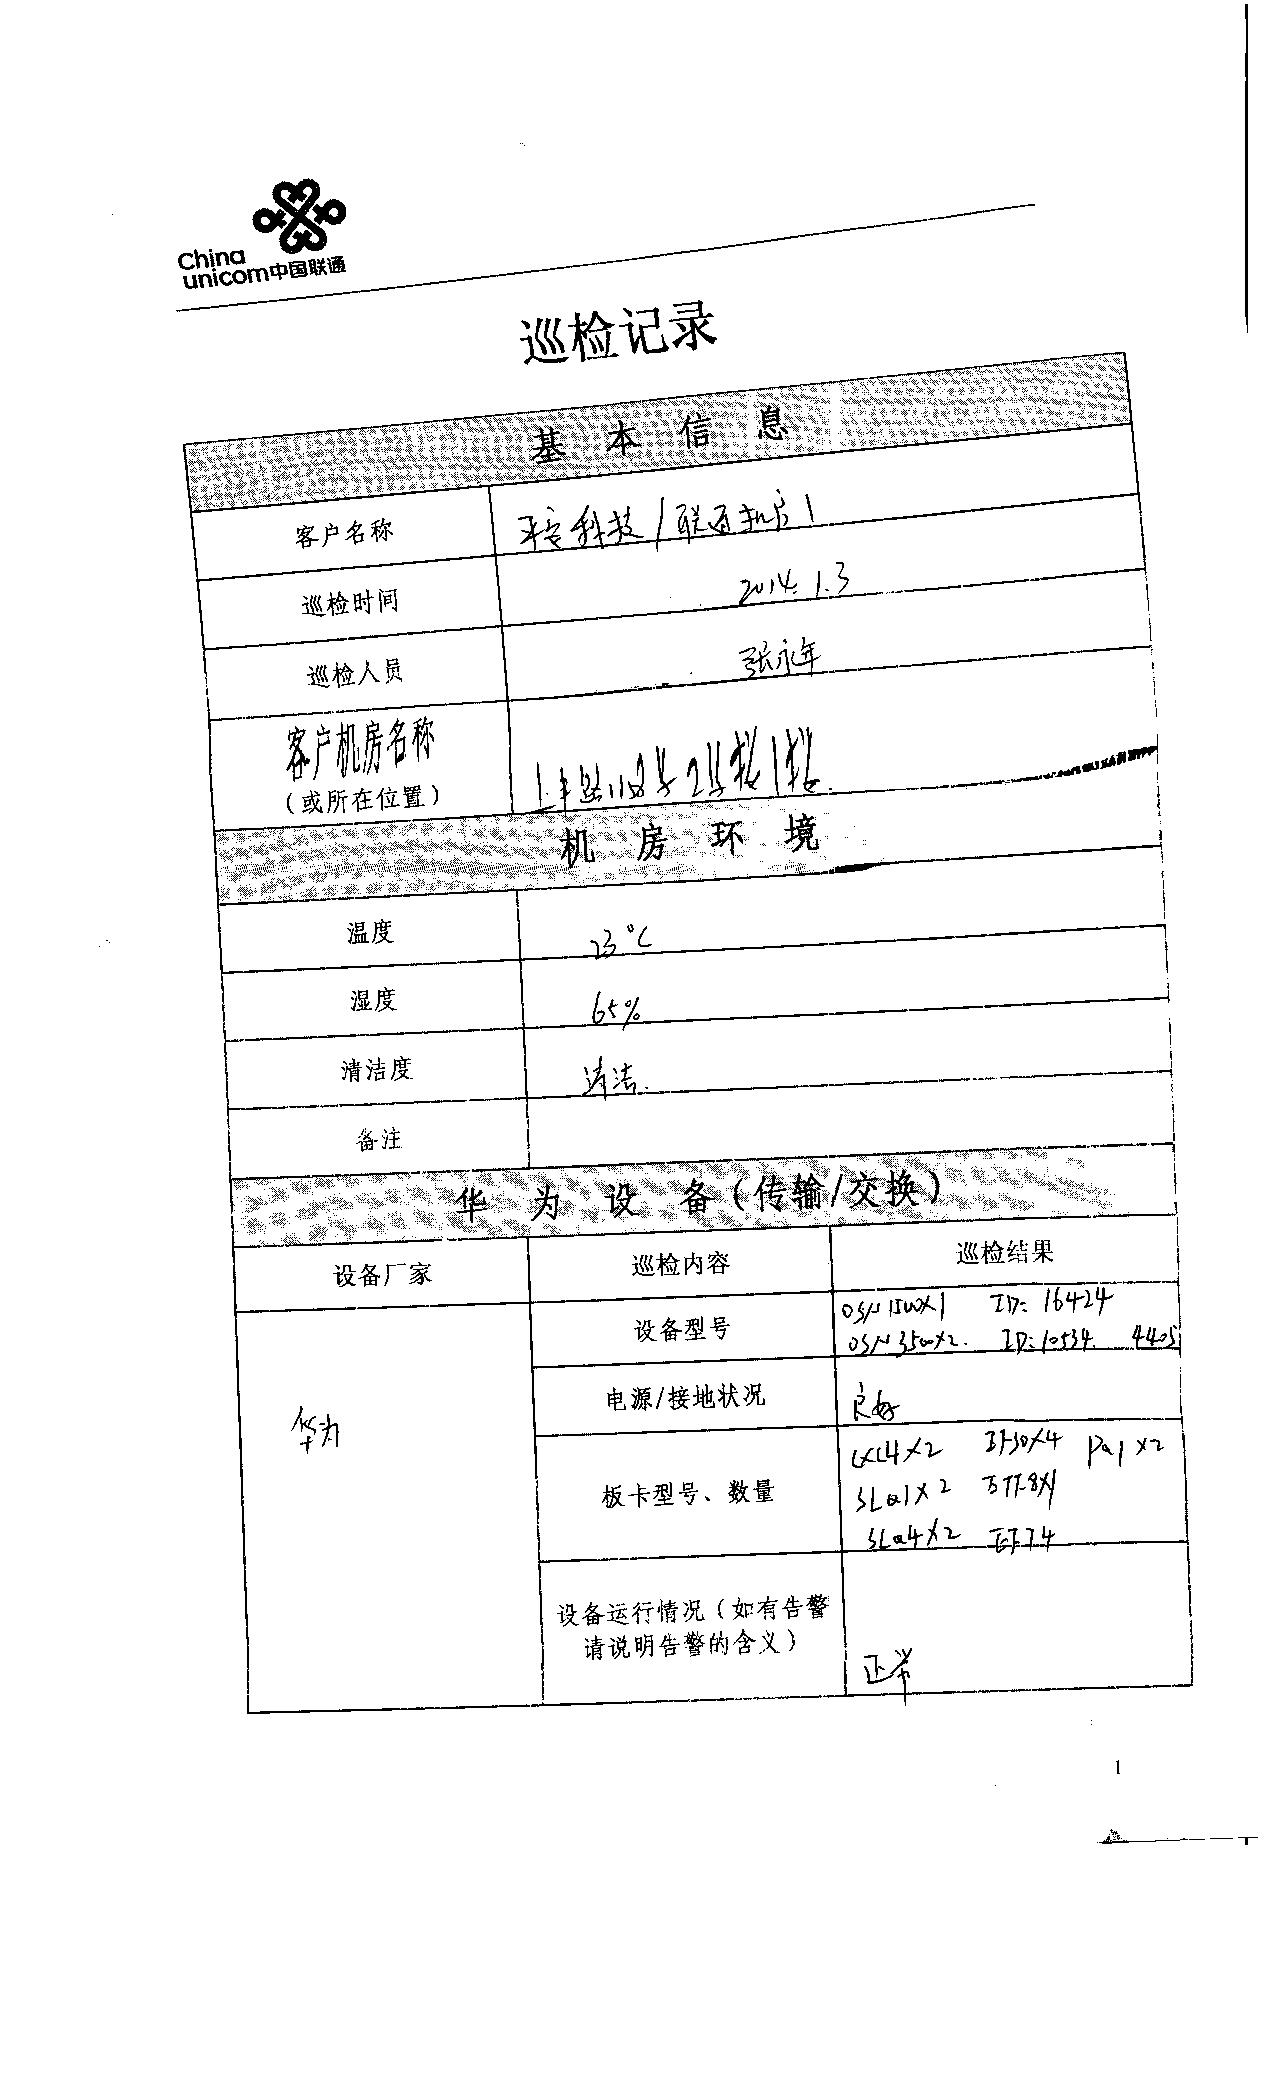 China
unicom中国联通
巡检记录
基本信息
客户名称 平安科技/联通机房1
巡检时间 2014.1.3
巡检人员 张永年
客户机房名称
(或所在位置) 号2号楼1楼.
机房环境
温度 23℃
湿度 65%
清洁度 清洁.
备注
华为设备(传输/交换)
设备厂家 巡检内容 巡检结果
华为
设备型号
OSN1500×1 ID: 16424
OSN3500×2. ID:10534. 4405
电源/接地状况 良好
板卡型号、数量
CXL4×2 ×4 PQ1×2
SLQ1×2
SLQ4×2
设备运行情况(如有告警
请说明告警的含义)
正常
1